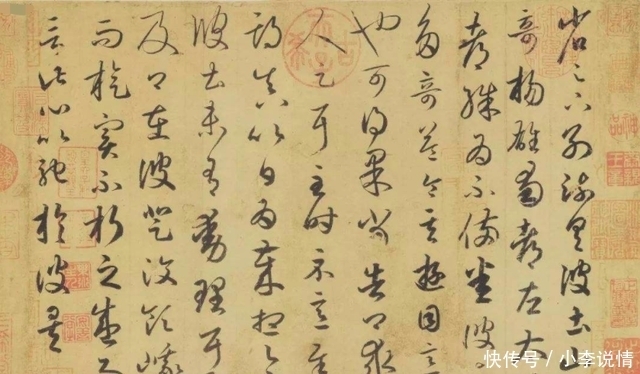 省足下別疏具彼土山
奇揚雄蜀都左太
都殊為不備悉彼
多奇益令其遊目意
也可得果當告卿求
人足耳至時示意
期真以日為歲想足
彼土未有動理耳
及卿在彼登汶領峨
而旋實不朽之盛事
言此心以馳於彼矣
快传号/小李说情